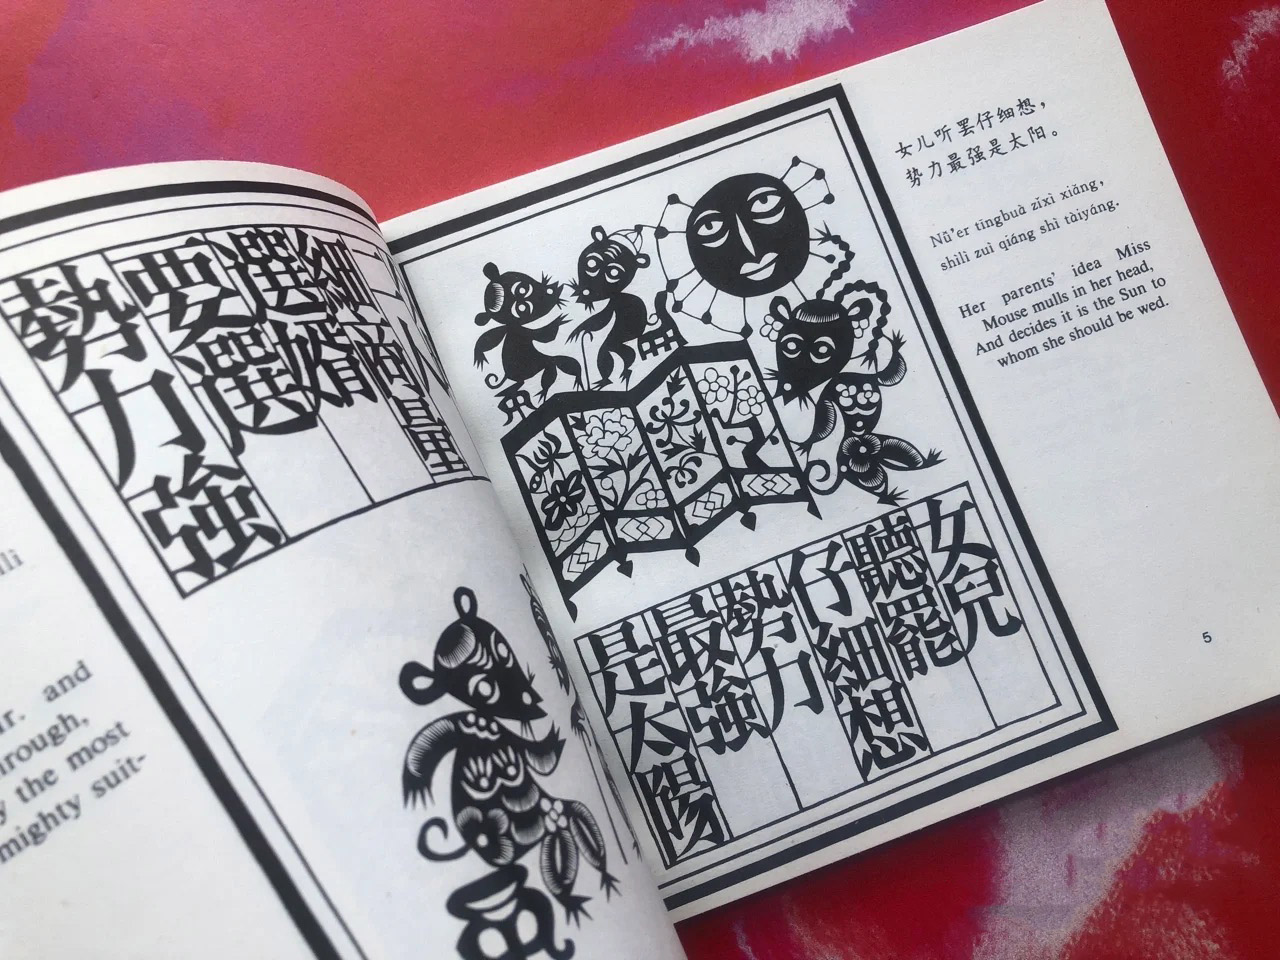 二
細商量
選婿
要選
勢力強
and
the most
mighty suit-
女儿听罢仔细想，
势力最强是太阳。
Nǚ'er tīngbuà zǐxì xiǎng,
shìlì zuì qiáng shì tàiyáng.
Her parents' idea Miss
Mouse mulls in her head,
And decides it is the Sun to
whom she should be wed.
女兒
聽罷
仔細想
勢力
最強
是太陽
5